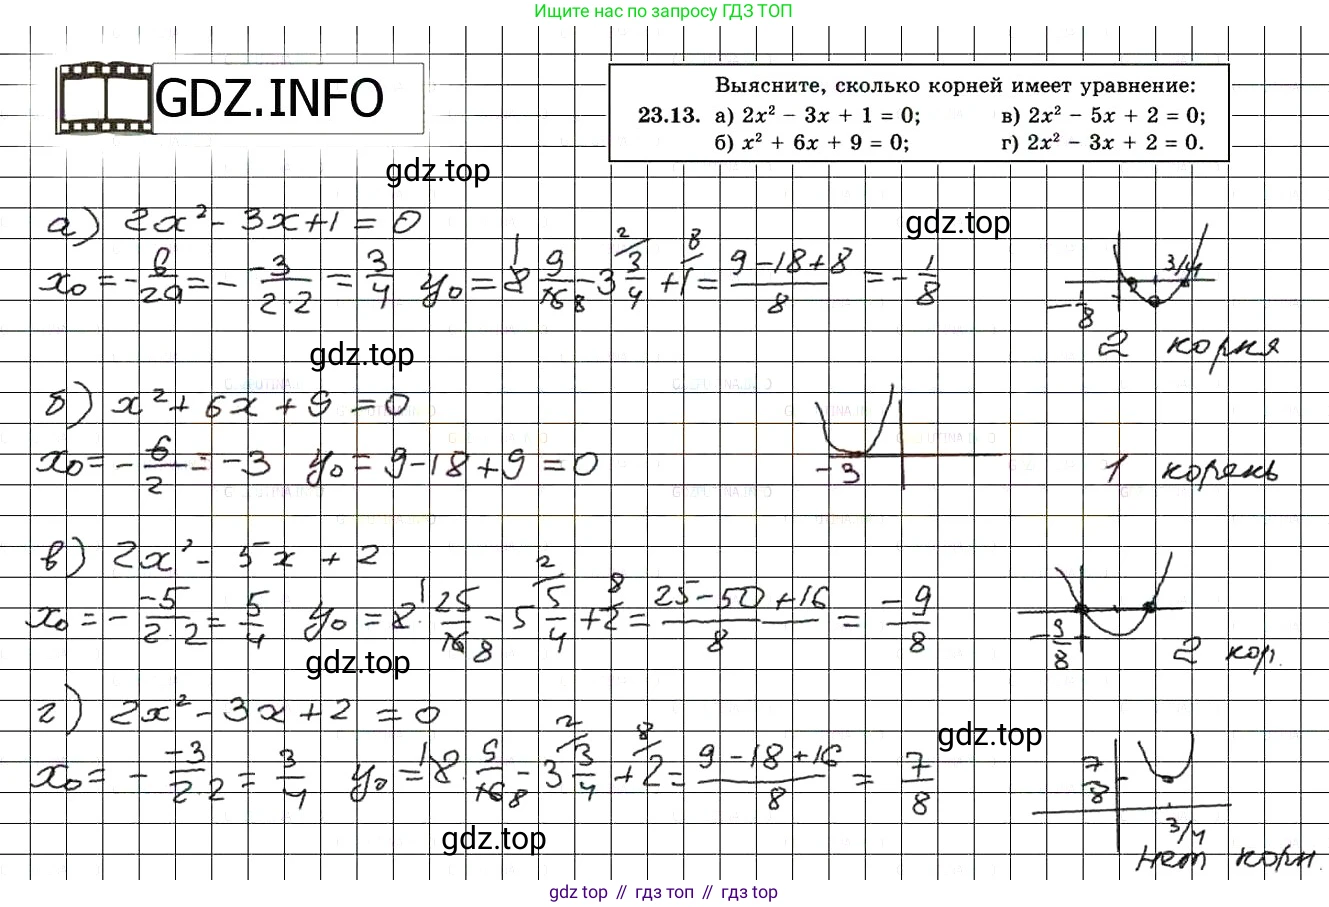 Ищите нас по запросу ГДЗ ТОП
GDZ.INFO
Выясните, сколько корней имеет уравнение:
23.13. а) 2x² − 3x + 1 = 0; в) 2x² − 5x + 2 = 0;
б) x² + 6x + 9 = 0; г) 2x² − 3x + 2 = 0.
gdz.top
gdz.top
а) 2x² - 3x + 1 = 0
x₀ = - b/2a = - -3/2·2 = 3/4 y₀ = 2 · 9/16 - 3 3/4 + 1 = 9-18+8/8 = - 1/8
3/4
- 1/8
2 корня
gdz.top
б) x² + 6x + 9 = 0
x₀ = - 6/2 = -3 y₀ = 9 - 18 + 9 = 0
-3
1 корень
в) 2x² - 5x + 2
x₀ = - -5/2·2 = 5/4 y₀ = 2 · 25/16 8 - 5 5/4 + 2 = 25-50+16/8 = -9/8
- 9/8
2 кор.
gdz.top
г) 2x² - 3x + 2 = 0
x₀ = - -3/2·2 = 3/4 y₀ = 2 · 9/16 8 - 3 3/4 + 2 = 9-18+16/8 = 7/8
gdz.top
7/8
3/4
нет корн.
gdz.top
gdz top // гдз топ // гдз top